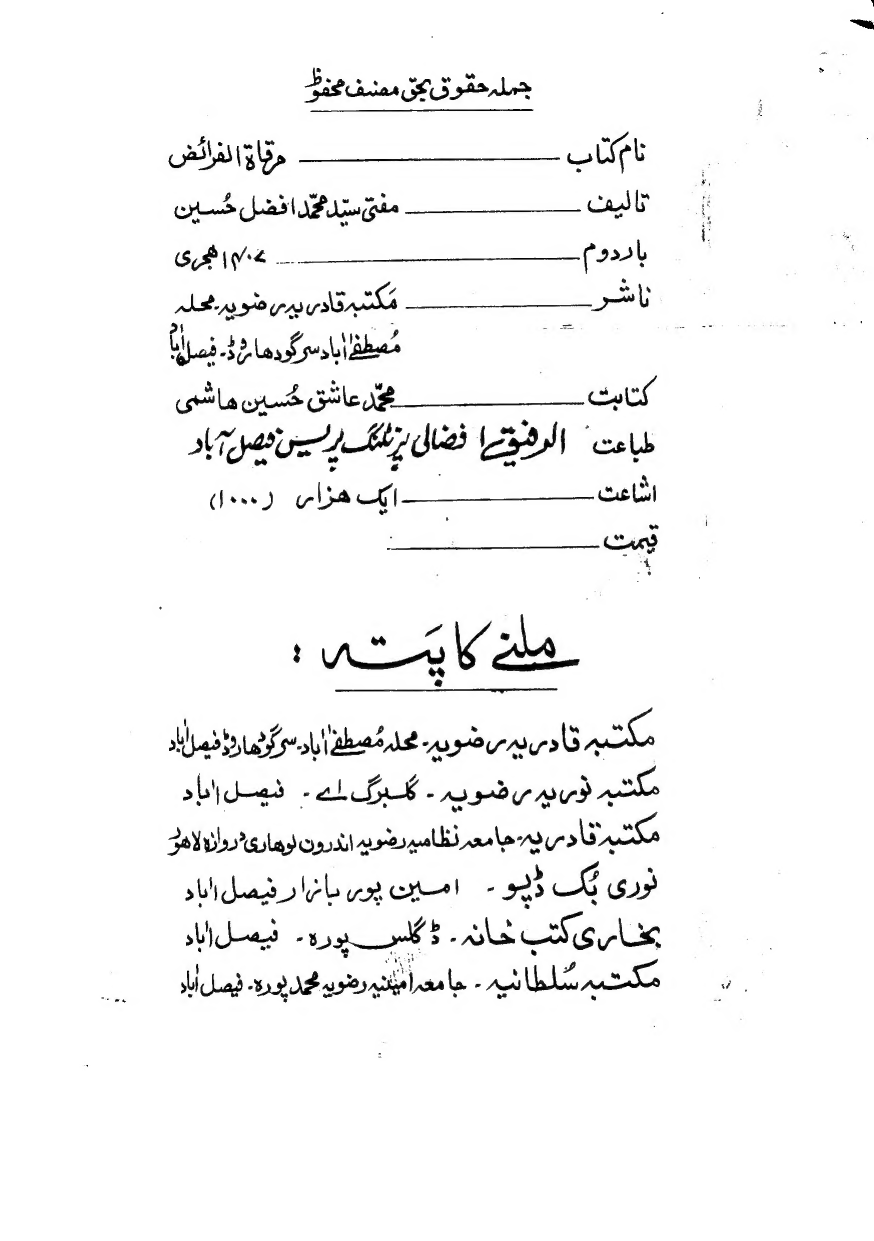 جملہ حقوق بحق مصنف محفوظ
نام کتاب ــــــــ مرقاۃ الفرائض
تالیف ــــــــ مفتی سیّد محمّد افضل حُسین
بار دوم ــــــــ ۱۴۰۷ ہجری
ناشر ــــــــ مَکتبہ قادریہ رضویہ۔ محلہ
مُصطفےٰ اٰباد سرگودھا روڈ۔ فیصل اٰباد
کتابت ــــــــ محمّد عاشق حُسین ہاشمی
طباعت فضالی پرنٹنگ پریس فیصل آباد
اشاعت ــــــــ ایک ہزار (۱۰۰۰)
قیمت ــــــــ
ملنے کا پَتہ :
مکتبہ قادریہ رضویہ۔ محلہ مُصطفےٰ اٰباد۔ سرگودھا روڈ فیصل اٰباد
مکتبہ نوریہ رضویہ ۔ گلبرگ اے ۔ فیصل اٰباد
مکتبہ قادریہ۔ جامعہ نظامیہ رضویہ اندرون لوھاری دروازہ لاھور
نوری بُک ڈپو ۔ امین پور بازار فیصل اٰباد
بخاری کتب خانہ ۔ ڈگلس پورہ ۔ فیصل اٰباد
مکتبہ سُلطانیہ ۔ جامعہ امینیہ رضویہ محمد پورہ۔ فیصل اٰباد